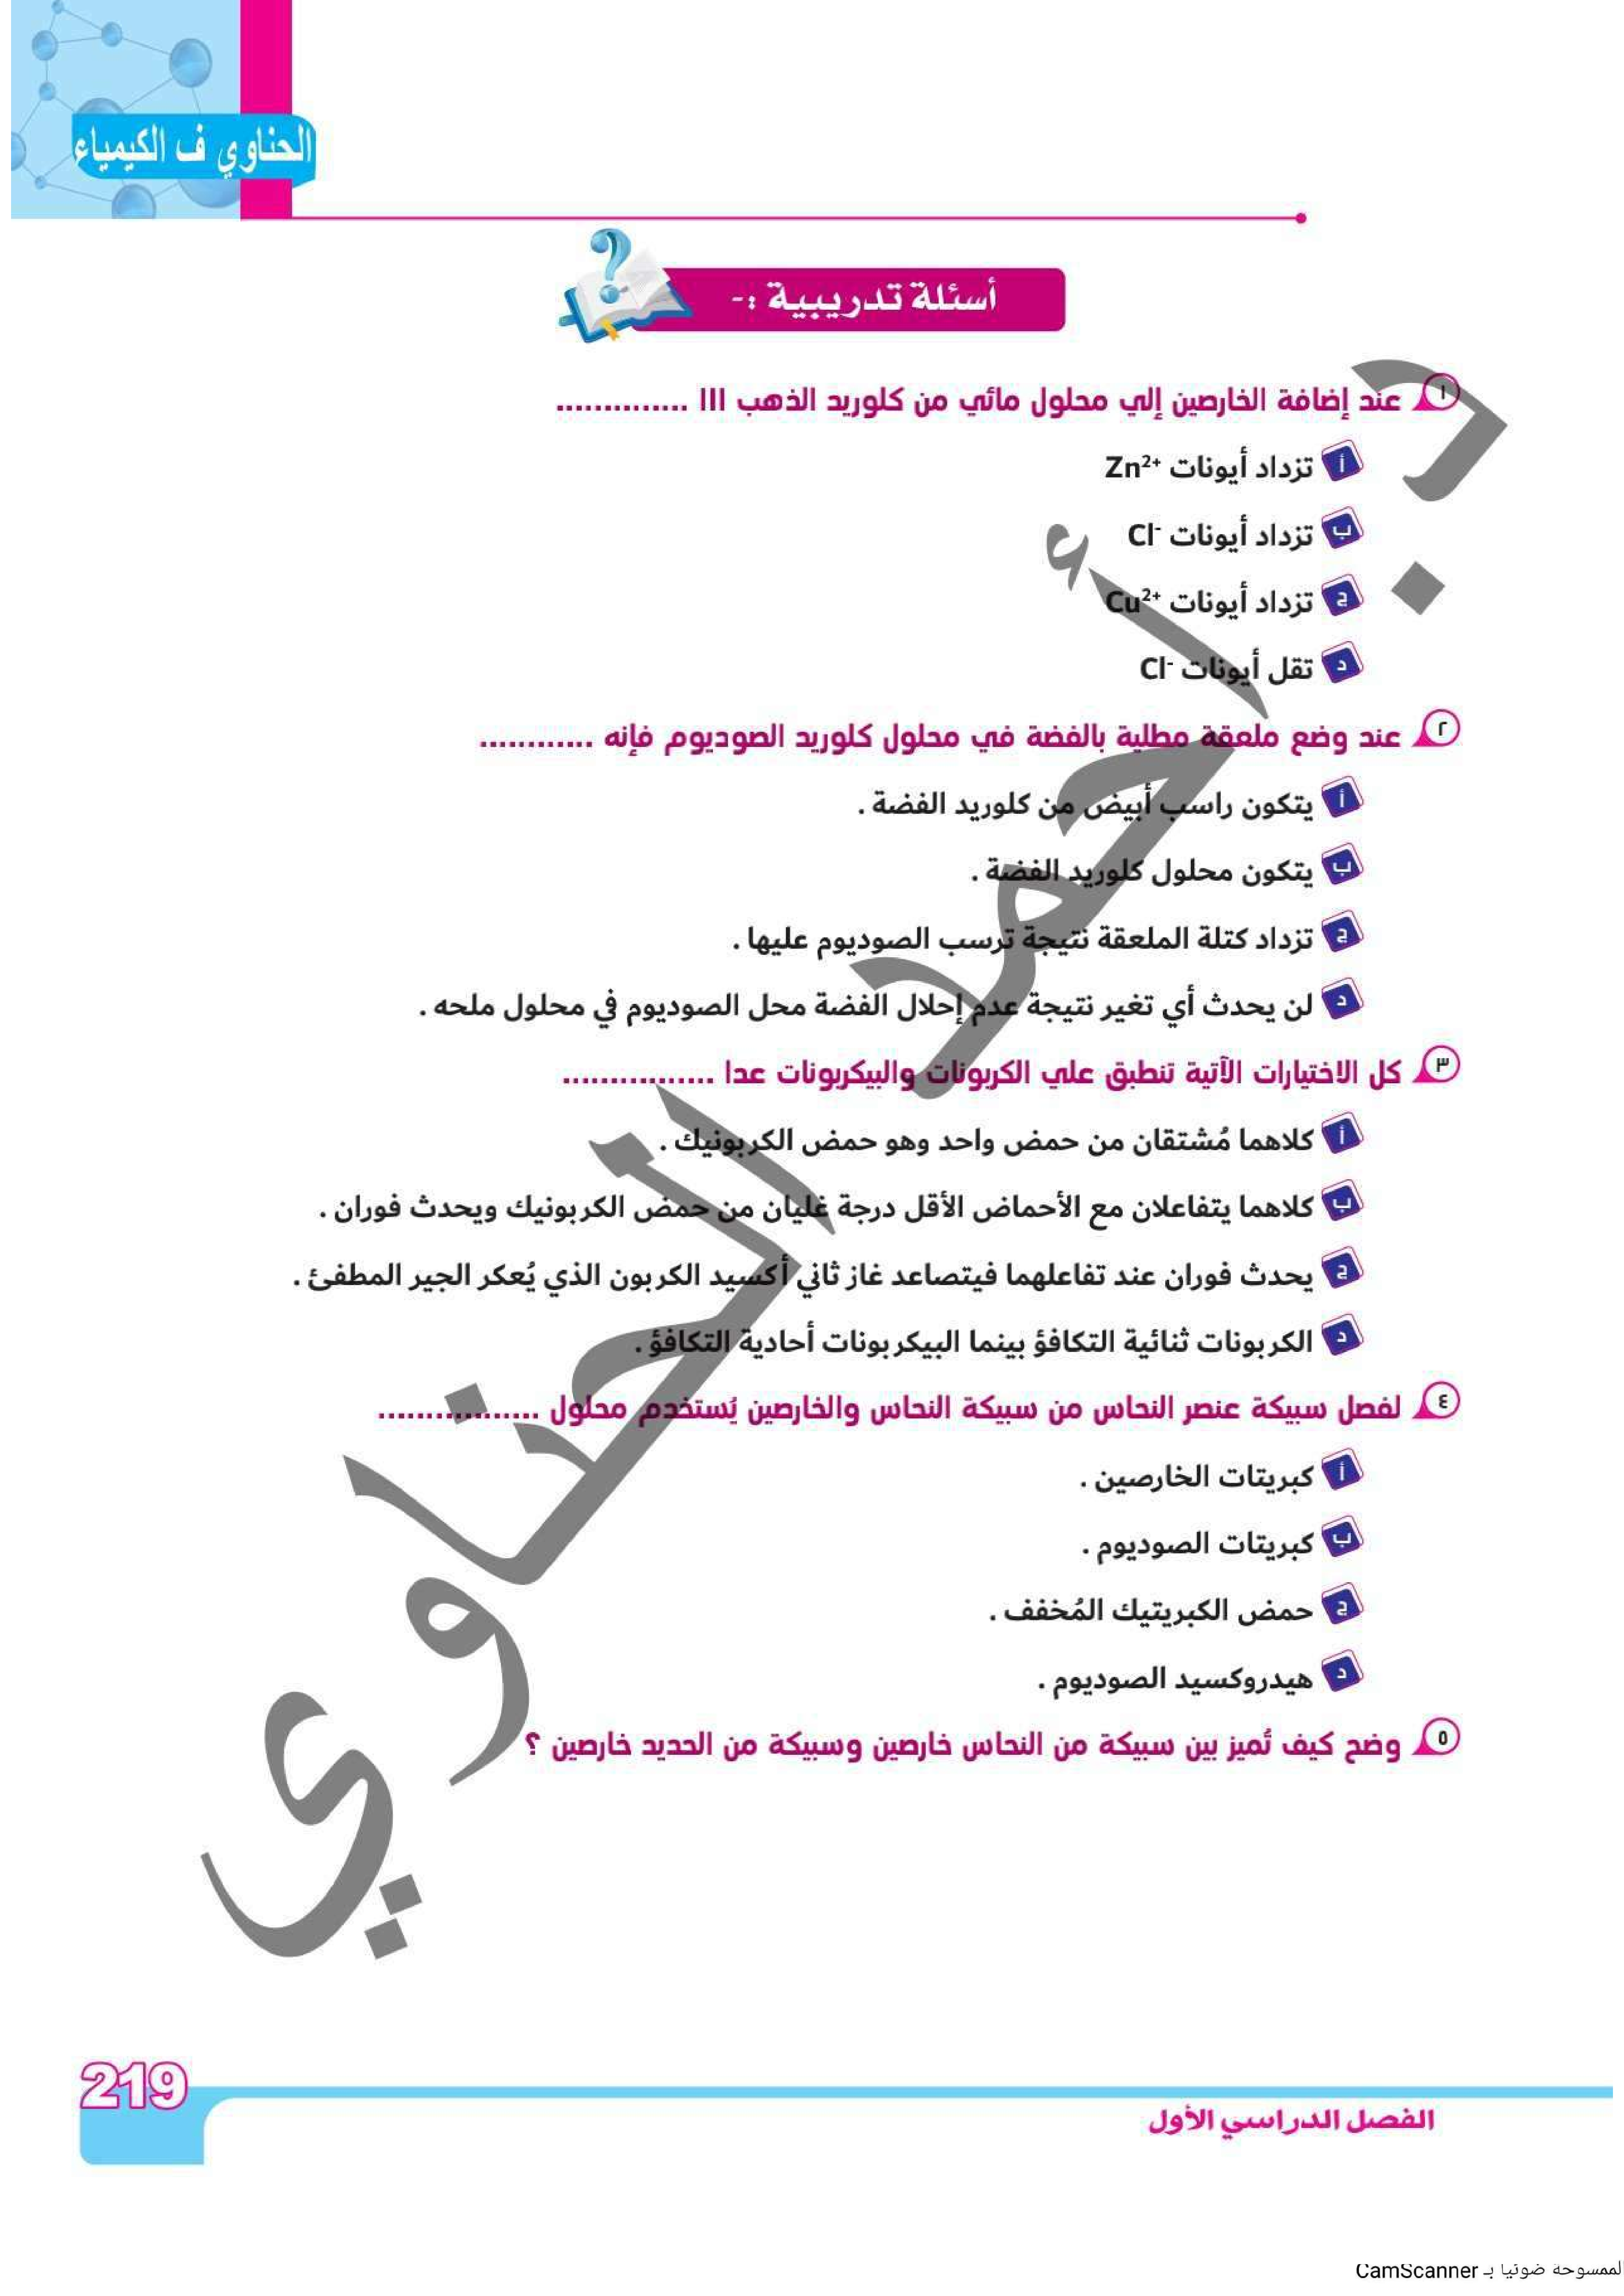 الحناوي ف الكيمياء
أسئلة تدريبية :-
١ عند إضافة الخارصين إلي محلول مائي من كلوريد الذهب III ..............
أ تزداد أيونات Zn²⁺
ب تزداد أيونات Cl⁻
ج تزداد أيونات Cu²⁺
د تقل أيونات Cl⁻
٢ عند وضع ملعقة مطلية بالفضة في محلول كلوريد الصوديوم فإنه ............
أ يتكون راسب أبيض من كلوريد الفضة .
ب يتكون محلول كلوريد الفضة .
ج تزداد كتلة الملعقة نتيجة ترسب الصوديوم عليها .
د لن يحدث أي تغير نتيجة عدم إحلال الفضة محل الصوديوم في محلول ملحه .
٣ كل الاختيارات الآتية تنطبق علي الكربونات والبيكربونات عدا ................
أ كلاهما مُشتقان من حمض واحد وهو حمض الكربونيك .
ب كلاهما يتفاعلان مع الأحماض الأقل درجة غليان من حمض الكربونيك ويحدث فوران .
ج يحدث فوران عند تفاعلهما فيتصاعد غاز ثاني أكسيد الكربون الذي يُعكر الجير المطفئ .
د الكربونات ثنائية التكافؤ بينما البيكربونات أحادية التكافؤ .
٤ لفصل سبيكة عنصر النحاس من سبيكة النحاس والخارصين يُستخدم محلول .................
أ كبريتات الخارصين .
ب كبريتات الصوديوم .
ج حمض الكبريتيك المُخفف .
د هيدروكسيد الصوديوم .
٥ وضح كيف تُميز بين سبيكة من النحاس خارصين وسبيكة من الحديد خارصين ؟
د. أحمد الحناوي
219
الفصل الدراسي الأول
لممسوحة ضوئيا بـ CamScanner